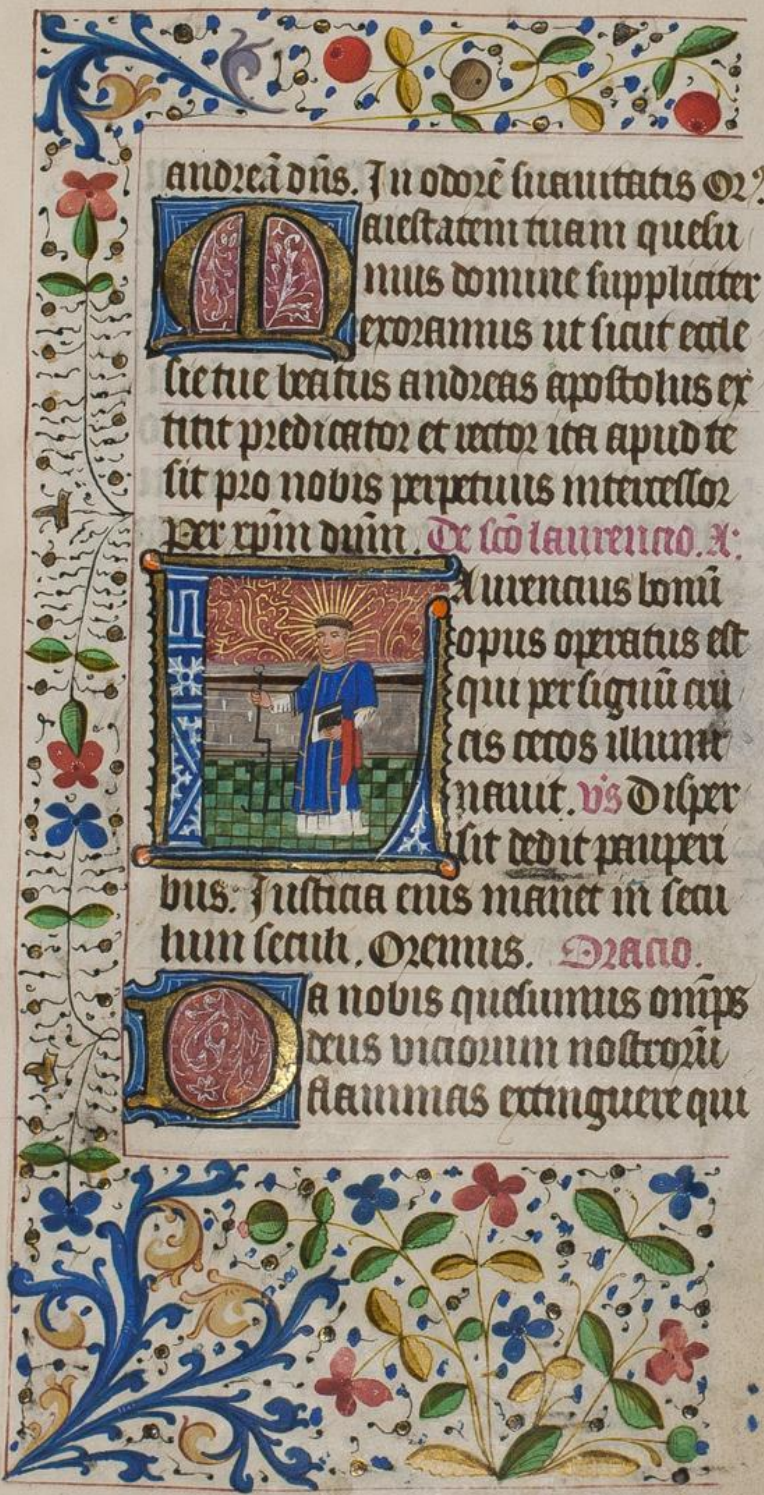 andreā dn̄s. In odorē suauitatis Or᷒
Maiestatem tuam quesu
mus domine suppliciter
exoramus ut sicut eccle
sie tue beatus andreas apostolus ex
titit predicator et rector ita apud te
sit pro nobis perpetuus intercessor
Per xp̄m dn̄m. De sc̄o laurencio. A:
Laurencius bonū
opus operatus est
qui per signū cru
cis cecos illumi
nauit. vs Disper
sit dedit pauperi
bus. Justicia eius manet in secu
lum seculi. Oremus. Oracio.
Da nobis quesumus om̄ps
deus viciorum nostrorū
flammas extinguere qui